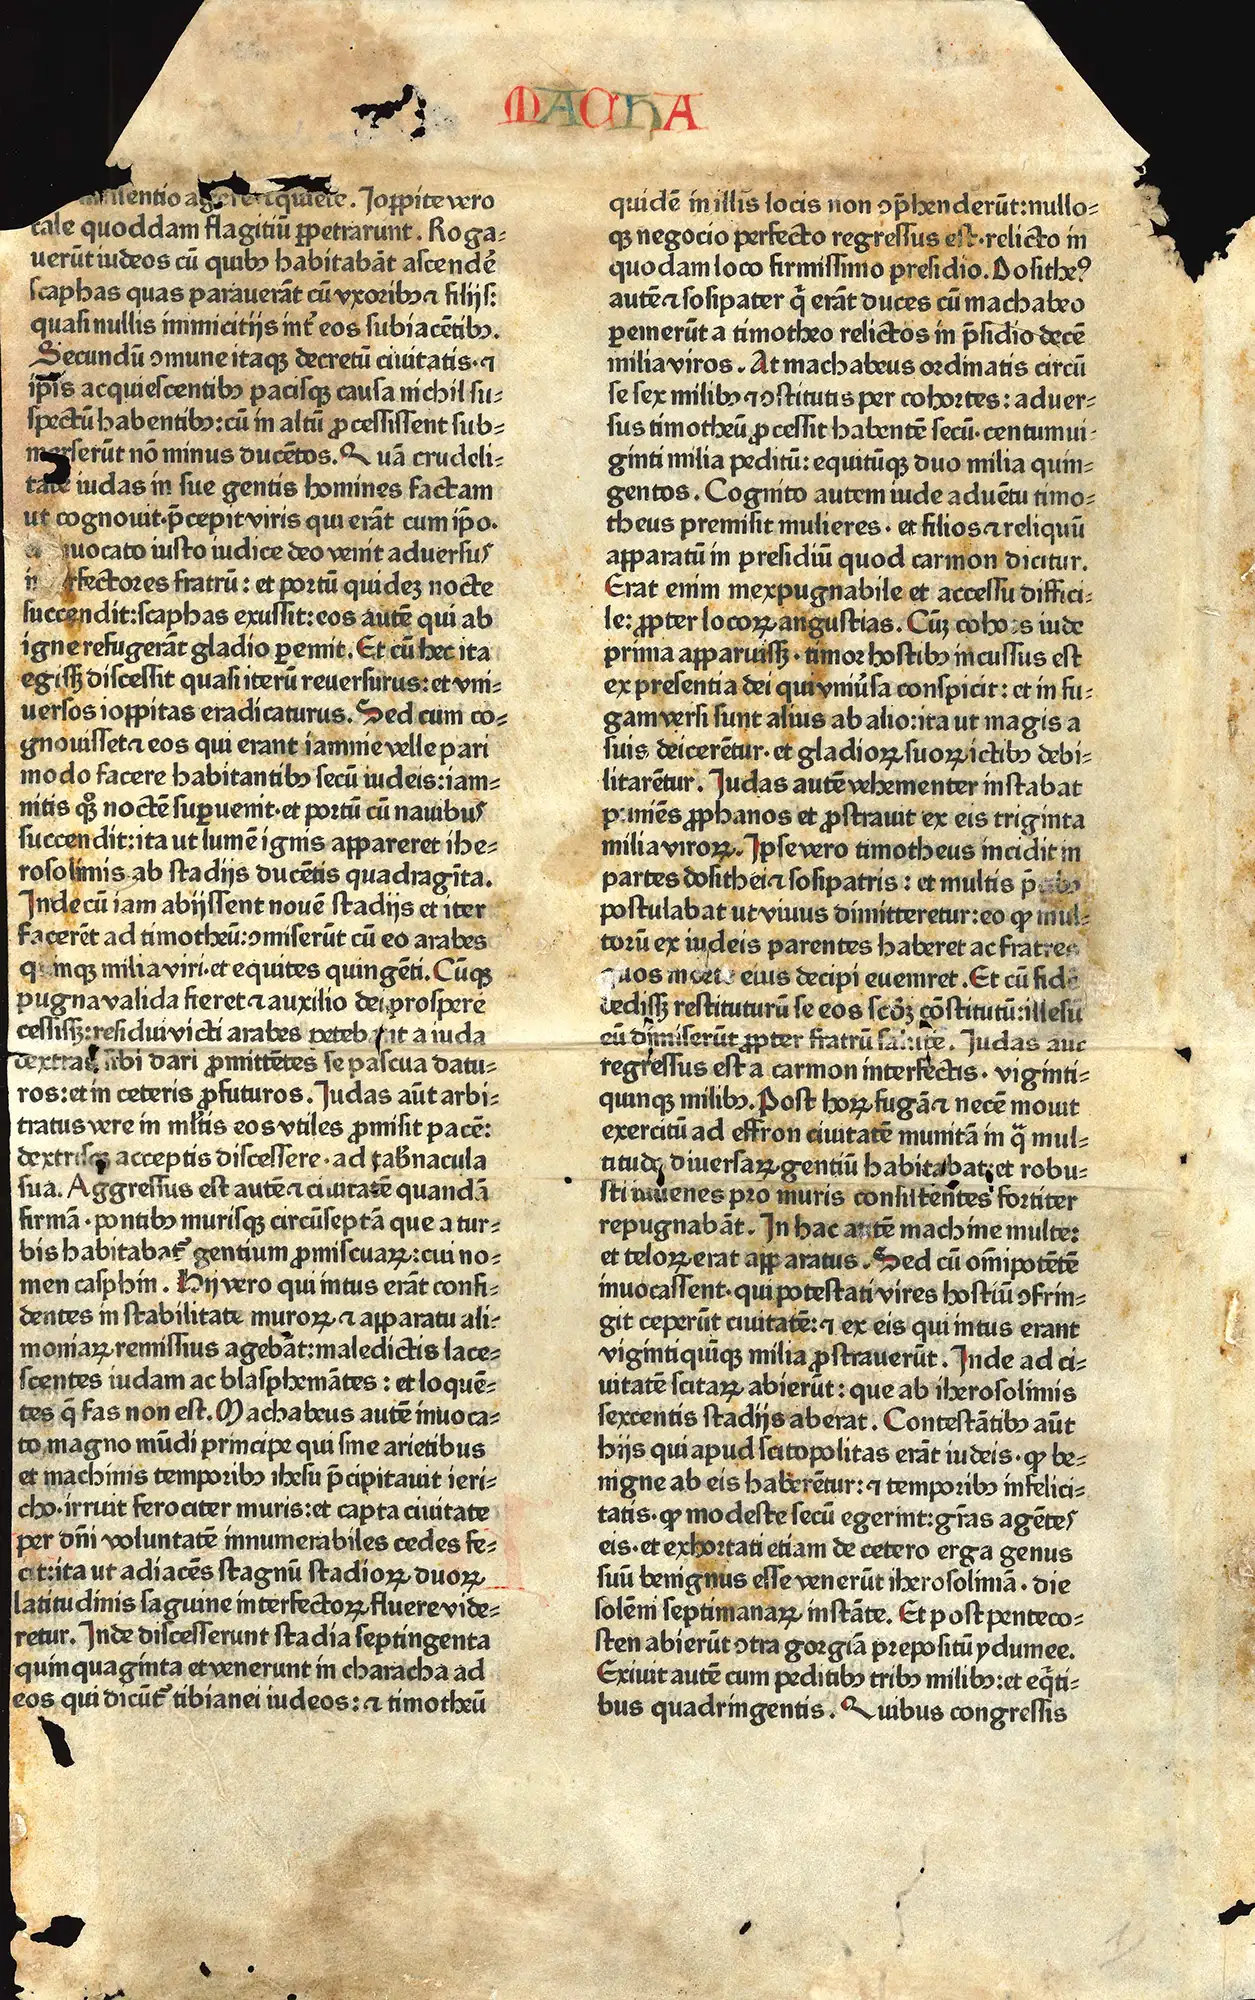 MACHA
silentio agere et quiete. Joppite vero
tale quoddam flagitiū ꝑpetrarunt. Roga⸗
uerūt iudeos cū quibꝫ habitabāt ascendē
scaphas quas parauerāt cū vxoribꝫ ⁊ filijs:
quasi nullis inimicitijs int̄ eos subiacētibꝫ.
Secundū ↄmune itaqꝫ decretū ciuitatis·⁊
ip̄is acquiescentibꝫ pacisqꝫ causa nichil su⸗
spectū habentibꝫ: cū in altū ꝓcessissent sub⸗
merserūt nō minus ducētos. Quā crudeli⸗
tatē iudas in sue gentis homines factam
ut cognouit·p̄cepit viris qui erāt cum ip̄o·
⁊ inuocato iusto iudice deo venit aduersus
interfectores fratrū: et portū quidez nocte
succendit: scaphas exussit: eos autē qui ab
igne refugerāt gladio ꝑemit. Et cū hec ita
egissꝫ discessit quasi iterū reuersurus: et vni⸗
uersos ioppitas eradicaturus. Sed cum co⸗
gnouisset ⁊ eos qui erant iamnie velle pari
modo facere habitantibꝫ secū iudeis: iam⸗
nitis qꝫ noctē suꝑuenit·et portū cū nauibus
succendit: ita ut lumē ignis appareret ihe⸗
rosolimis ab stadijs ducētis quadragīta.
Inde cū iam abijssent nouē stadijs et iter
facerēt ad timotheū: ↄmiserūt cū eo arabes
quinqꝫ milia viri·et equites quingēti. Cūqꝫ
pugna valida fieret ⁊ auxilio dei prospere
cessissꝫ: residui victi arabes petebāt a iuda
dextras sibi dari ꝓmittētes se pascua datu⸗
ros: et in ceteris ꝓfuturos. Judas aūt arbi⸗
tratus vere in ml̄tis eos vtiles ꝓmisit pacē:
dextrisqꝫ acceptis discessere·ad tab̄nacula
sua. Aggressus est autē ⁊ ciuitatē quandā
firmā·pontibꝫ murisqꝫ circūseptā que a tur⸗
bis habitabat̄ gentium ꝓmiscuaꝝ: cui no⸗
men casphin. Hij vero qui intus erāt confi⸗
dentes in stabilitate muroꝝ ⁊ apparatu ali⸗
moniaꝝ remissius agebāt: maledictis lace⸗
scentes iudam ac blasphemātes: et loquē⸗
tes q̄ fas non est. Machabeus autē inuoca⸗
to magno mūdi principe qui sine arietibus
et machinis temporibꝫ ihesu p̄cipitauit ieri⸗
cho·irruit ferociter muris: et capta ciuitate
per dn̄i voluntatē innumerabiles cedes fe⸗
cit: ita ut adiacēs stagnū stadioꝝ duoꝝ
latitudinis saguine interfectoꝝ fluere vide⸗
retur. Inde discesserunt stadia septingenta
quinquaginta et venerunt in characha ad
eos qui dicūt̄ tibianei iudeos: ⁊ timotheū
quidē in illis locis non ↄp̄henderūt: nullo⸗
qꝫ negocio perfecto regressus est·relicto in
quodam loco firmissimo presidio. Dositheꝰ
autē ⁊ sosipater q̄ erāt duces cū machabeo
ꝑemerūt a timotheo relictos in p̄sidio decē
milia viros. At machabeus ordinatis circū
se sex milibꝫ ⁊ ↄstitutis per cohortes: aduer⸗
sus timotheū ꝓcessit habentē secū·centum ui⸗
ginti milia peditū: equitūqꝫ duo milia quin⸗
gentos. Cognito autem iude aduētu timo⸗
theus premisit mulieres·et filios ⁊ reliquū
apparatū in presidiū quod carmon dicitur.
Erat enim inexpugnabile et accessu diffici⸗
le: ꝓpter locoꝝ angustias. Cūꝫ cohors iude
prima apparuissꝫ·timor hostibꝫ incussus est
ex presentia dei qui vniūsa conspicit: et in fu⸗
gam versi sunt alius ab alio: ita ut magis a
suis deicerētur·et gladioꝝ suoꝝ ictibꝫ debi⸗
litarētur. Judas autē vehementer instabat
puniēs ꝓphanos et ꝓstrauit ex eis triginta
milia viroꝝ. Ipse vero timotheus incidit in
partes dosithei ⁊ sosipatris: et multis p̄cibꝫ
postulabat ut viuus dimitteretur: eo ꝙ mul⸗
torū ex iudeis parentes haberet ac fratres
quos morte eius decipi eueniret. Et cū fidē
dedissꝫ restituturū se eos scd̄ꝫ cōstitutū: illesū
eū dimiserūt ꝓpter fratrū salutē. Judas aut
regressus est a carmon interfectis·viginti⸗
quinqꝫ milibꝫ. Post hoꝝ fugā ⁊ necē mouit
exercitū ad effron ciuitatē munitā in q̄ mul⸗
titudo diuersaꝝ gentiū habitabat; et robu⸗
sti iuuenes pro muris consistentes fortiter
repugnabāt. In hac autē machine multe:
et teloꝝ erat apparatus. Sed cū om̄ipotētē
inuocassent·qui potestati vires hostiū ↄfrin⸗
git ceperūt ciuitatē: ⁊ ex eis qui intus erant
viginti quīqꝫ milia ꝓstrauerūt. Inde ad ci⸗
uitatē scitaꝝ abierūt: que ab iherosolimis
sexcentis stadijs aberat. Contestātibꝫ aūt
hijs qui apud scitopolitas erāt iudeis·ꝙ be⸗
nigne ab eis haberētur: ⁊ temporibꝫ infelici⸗
tatis·ꝙ modeste secū egerint: gr̄as agētes
eis·et exhortati etiam de cetero erga genus
suū benignus esse venerūt iherosolimā·die
solēni septimanaꝝ instāte. Et post penteco⸗
sten abierūt ↄtra gorgiā prepositū ydumee.
Exiuit autē cum peditibꝫ tribꝫ milibꝫ: et eq̄ti⸗
bus quadringentis. Quibus congressis